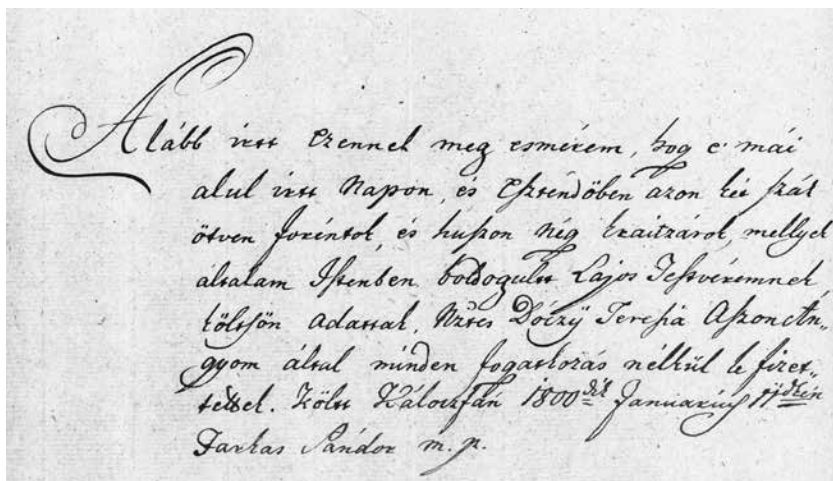 Alább irtt Ezennel meg esmérem, hog e' mái
alul irtt Napon, és Esztendőben azon két száz
ötven forintok, és huszon nég kraitzárok, mellyek
általam Istenben boldogultt Lajos Testvéremnek,
költsön adattak, Nztes Dóczÿ Teresia Aszonc An„
gyom által minden fogatkozás nélkül le fizet„
tettek. költt Káloczfán 1800dik Januarius
Farkas Sándor m. p.